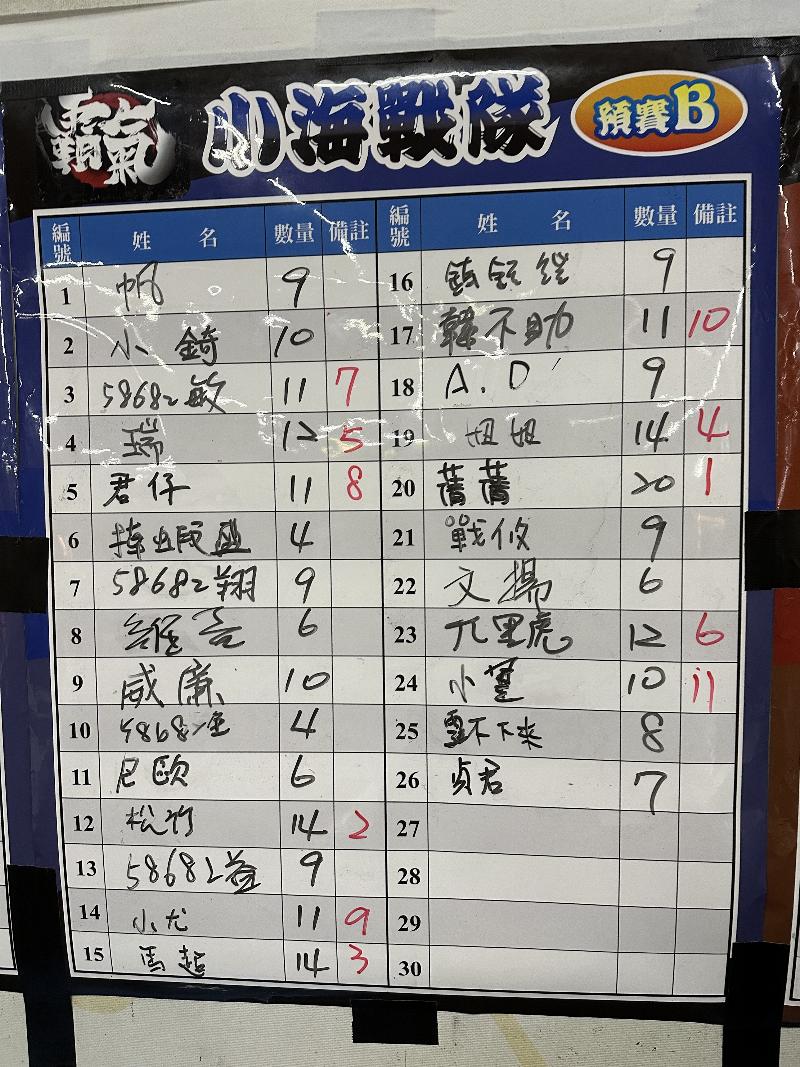 霸氣 小海戰隊 預賽B
編號 姓名 數量 備註 編號 姓名 數量 備註
1 帆 9 16 9
2 小錡 10 17 韓不助 11 10
3 58682敏 11 7 18 A.D 9
4 瑞 12 5 19 妞妞 14 4
5 君仔 11 8 20 菁菁 20 1
6 4 21 9
7 58682翔 9 22 文揚 6
8 6 23 虎 12 6
9 威廉 10 24 小 10 11
10 4 25 不下來 8
11 尼歐 6 26 貞君 7
12 松竹 14 2 27
13 58682益 9 28
14 小尤 11 9 29
15 馬超 14 3 30